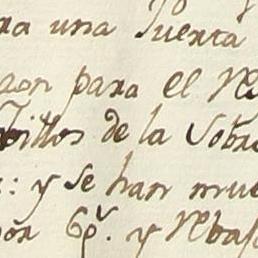 ra una Puerta
zon para el Re
billos de la Sobre
: y se han mue
por 6p.^s y Rebaj